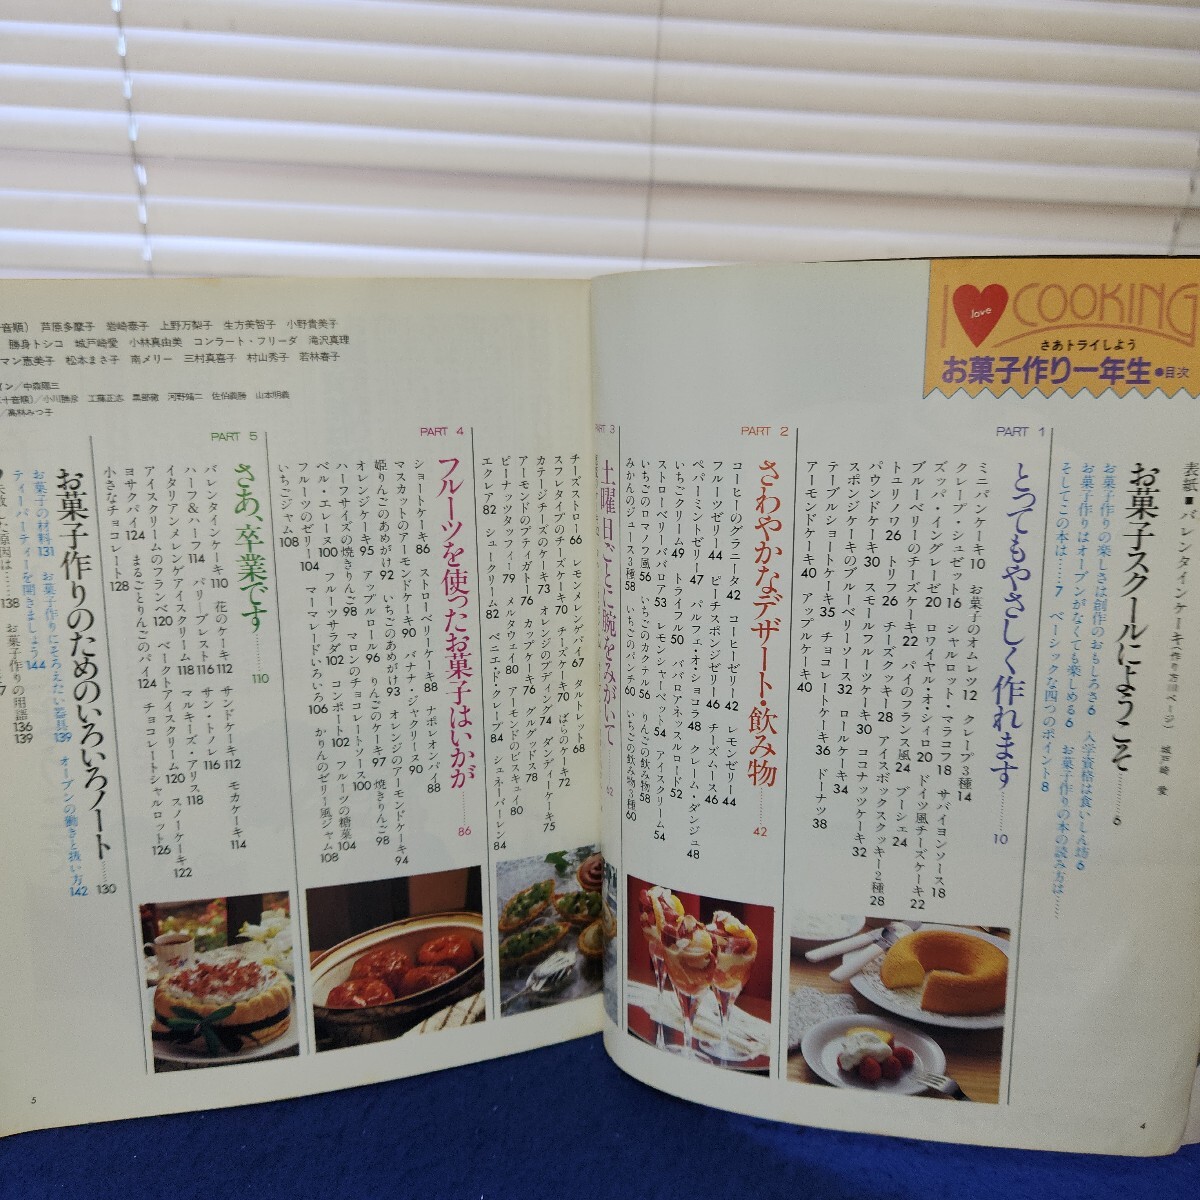 I love COOKING
さあトライしよう
お菓子作り一年生●目次
表紙■バレンタインケーキ(作り方110ページ) 城戸崎 愛
お菓子スクールにようこそ……6
お菓子作りの楽しさは創作のおもしろさ6 入学資格は食いしん坊6
お菓子作りはオーブンがなくても楽しめる6 お菓子作りの本の読み方は……
そしてこの本は……7 ベーシックな四つのポイント8
PART 1
とってもやさしく作れます……10
ミニパンケーキ10 お菓子のオムレツ12 クレープ3種14
クレープ・シュゼット16 シャルロット・マラコフ18 サバイヨンソース18
ズッパ・イングレーゼ20 ロワイヤル・オ・シィロ20 ドイツ風チーズケーキ22
ブルーベリーのチーズケーキ22 パイのフランス風24 ブーシェ24
トュリノワ26 トリフ26 チーズクッキー28 アイスボックスクッキー2種28
パウンドケーキ30 スモールフルーツケーキ30 ココナッツケーキ32
スポンジケーキのブルーベリーソース32 ロールケーキ34
テーブルショートケーキ35 チョコレートケーキ36 ドーナツ38
アーモンドケーキ40 アップルケーキ40
PART 2
さわやかなデザート・飲み物……42
コーヒーのグラニータ42 コーヒーゼリー42 レモンゼリー44
フルーツゼリー44 ピーチスポンジゼリー46 チーズムース46
ペパーミントゼリー47 パルフェ・オ・ショコラ48 クレーム・ダンジュ48
いちごクリーム49 トライフル50 ババロアネッスルロード52
ストロベリーババロア53 レモンシャーベット54 アイスクリーム54
いちごのロマノフ風56 いちごのカクテル56 りんごの飲み物58
みかんのジュース3種58 いちごのパンチ60 いちごの飲み物3種60
PART 3
土曜日ごとに腕をみがいて
62
チーズストロー66 レモンメレンゲパイ67 タルトレット68
スフレタイプのチーズケーキ70 ばらのケーキ72
カテージチーズのケーキ73 オレンジのプディング74 ダンディーケーキ75
アーモンドのプティガトー76 カップケーキ76 グルグッドス78
ピーナッツタッフィー79 メルタウェイ80 アーモンドのビスキュイ80
エクレア82 シュークリーム82 ベニエ・ド・クレープ84 シュネーバーレン84
PART 4
フルーツを使ったお菓子はいかが……86
ショートケーキ86 ストロベリーケーキ88 ナポレオンパイ88
マスカットのアーモンドケーキ90 バナナ・ジンジャーケーキ90
姫りんごのあめがけ92 いちごのあめがけ93 オレンジのアーモンドケーキ94
オレンジケーキ95 アップルロール96 りんごのケーキ97 焼きりんご98
ハーフサイズの焼きりんご98 マロンのチョコレートソース100
ベル・エレーヌ100 フルーツサラダ102 コンポート102 フルーツの糖菓104
フルーツのゼリー104 マーマレードいろいろ106 かりんのゼリー風ジャム108
いちごジャム108
PART 5
さあ、卒業です……110
バレンタインケーキ110 花のケーキ112 サンドケーキ112 モカケーキ114
ハーフ&ハーフ114 パリ－ブレスト116 サン・トノレ116
イタリアンメレンゲアイスクリーム118 マルキーズ・アリス118
アイスクリームのフランベ120 ベークトアイスクリーム120 スノーケーキ122
ヨサクパイ124 まるごとりんごのパイ124 チョコレートシャルロット126
小さなチョコレート128
お菓子作りのためのいろいろノート……130
お菓子の材料131 お菓子作りにそろえたい器具139 オーブンの働きと扱い方142
ティーパーティーを開きましょう144
原因は……138 お菓子作りの用語136
139
音順) 芦原多摩子 岩崎泰子 上野万梨子 生方美智子 小野貴美子
勝身トシコ 城戸崎愛 小林真由美 コンラート・フリーダ 滝沢真理
マン恵美子 松本まさ子 南メリー 三村真喜子 村山秀子 若林春子
イン/中森陽三
十音順)/小川勝彦 工藤正志 黒部徹 河野婼二 佐伯義勝 山本明義
/高林みつ子
5
4